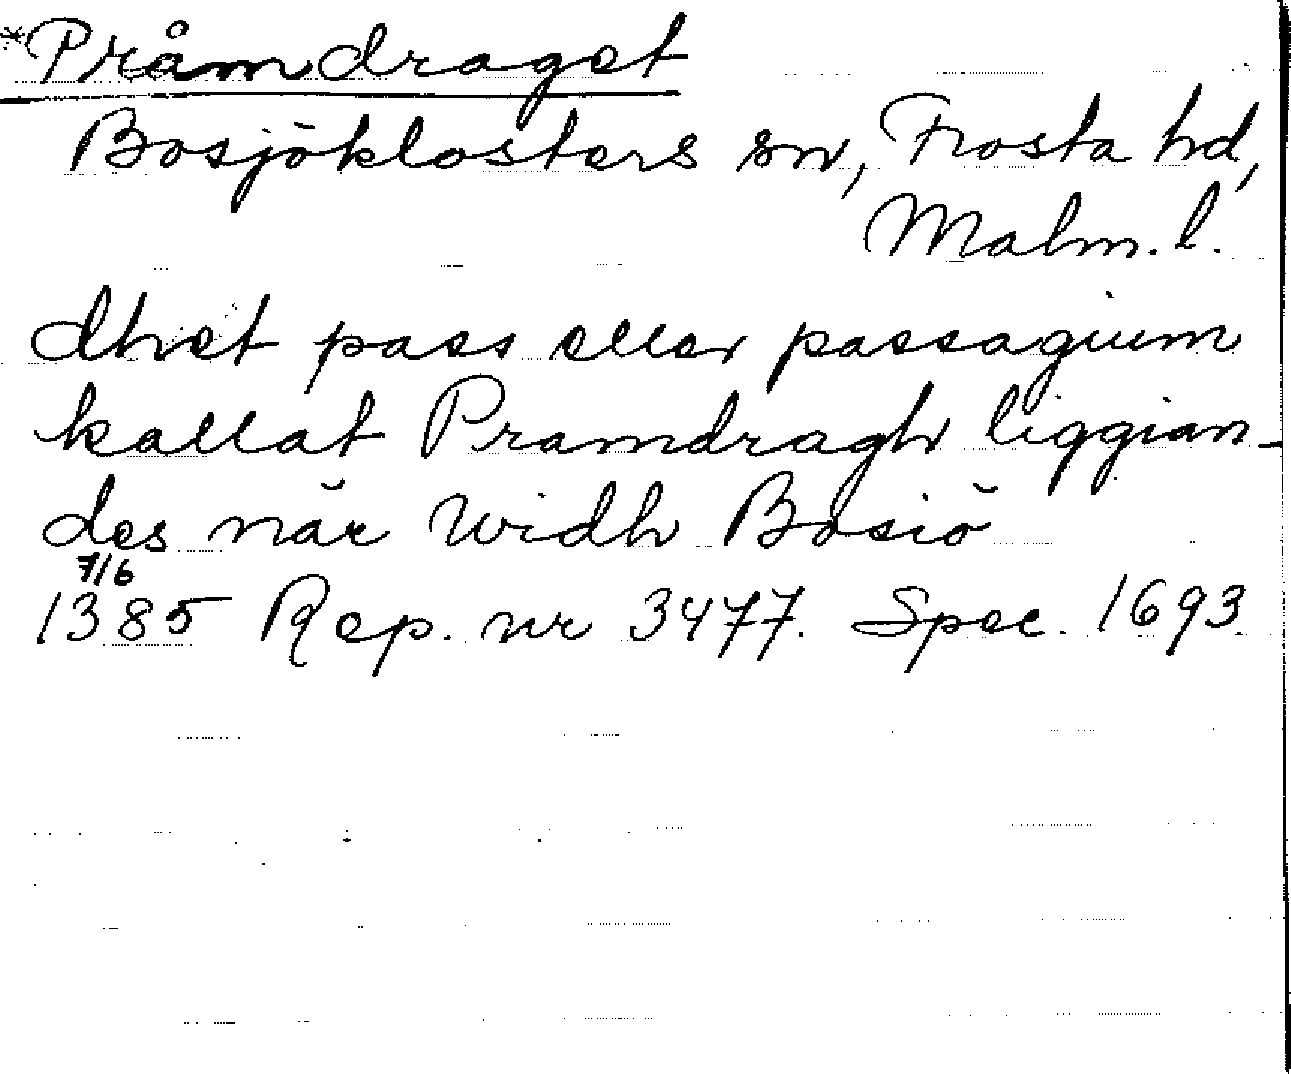 *Pråmdraget
Bosjöklosters sn, Frosta hd,
Malm. l.
dhet pass eller passagium
kallat Pramdragh liggian-
des när widh Bosiö
7/6
1385 Rep. nr 3477. Spec. 1693